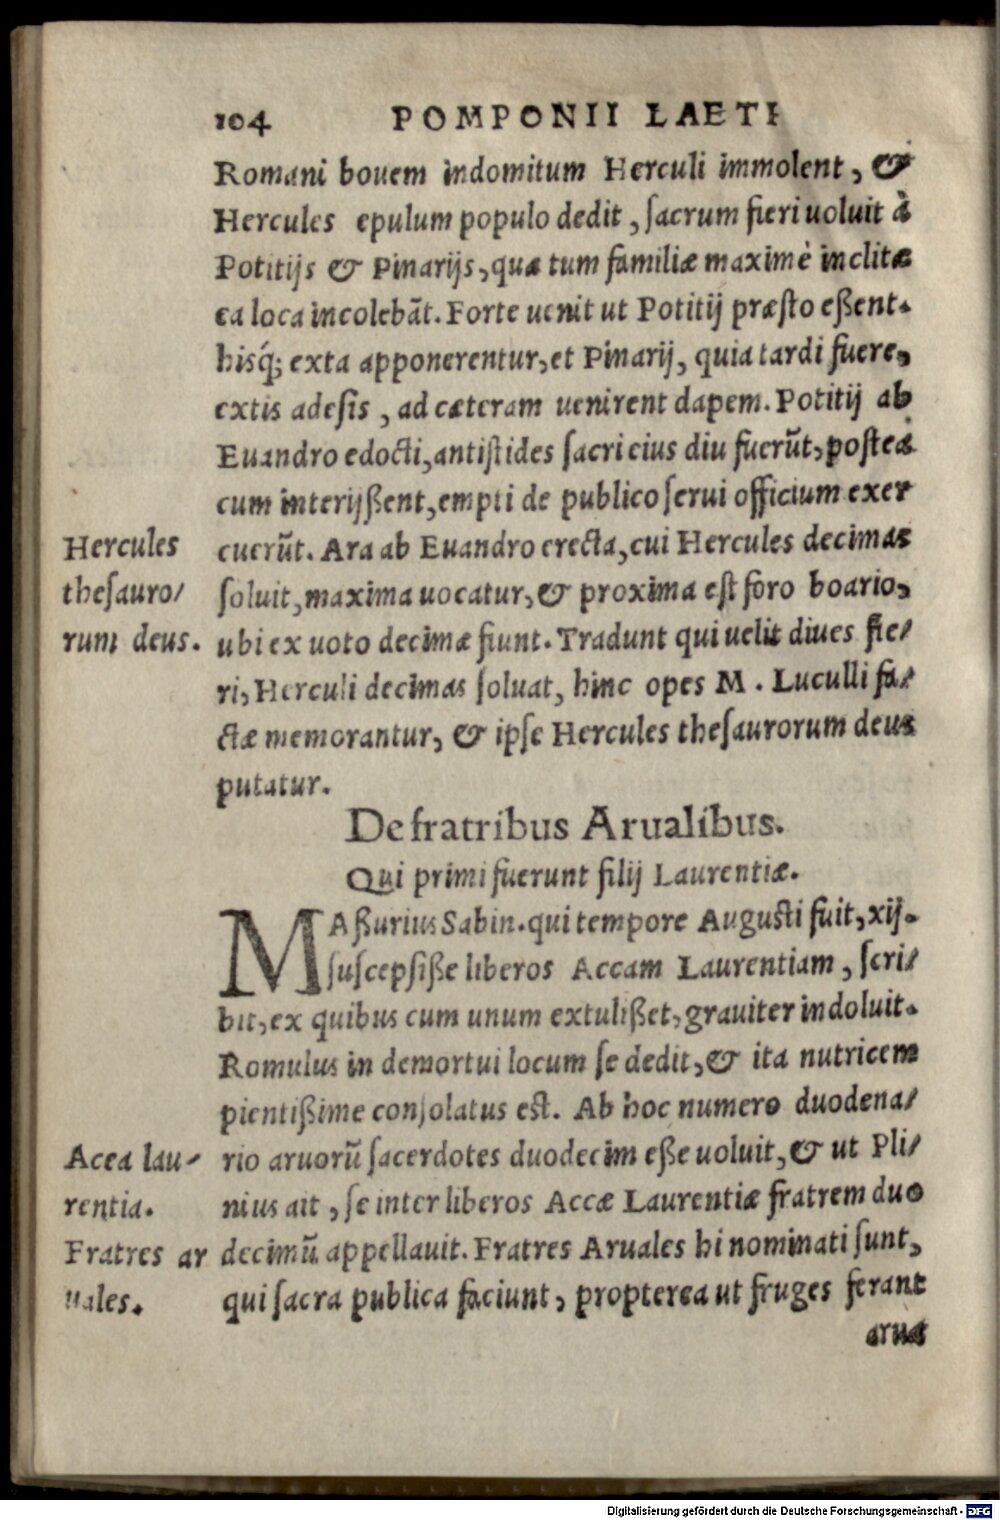 104 POMPONII LAETI
Romani bouem indomitum Herculi immolent, &
Hercules epulum populo dedit, sacrum fieri uoluit à
Potitijs & Pinarijs, quæ tum familiæ maximè inclitæ
ea loca incolebāt. Forte uenit ut Potitij præsto eßent.
hisq́; exta apponerentur, et Pinarij, quia tardi fuere,
extis adesis, ad cæteram uenirent dapem. Potitij ab
Euandro edocti, antistides sacri eius diu fuerūt, posteà
cum interijßent, empti de publico serui officium exer
cuerūt. Ara ab Euandro erecta, cui Hercules decimas
soluit, maxima uocatur, & proxima est foro boario,
ubi ex uoto decimæ fiunt. Tradunt qui uelit diues fie/
ri, Herculi decimas soluat, hinc opes M. Luculli fa/
ctæ memorantur, & ipse Hercules thesaurorum deus
putatur.
Hercules
thesauro/
rum deus.
De fratribus Arualibus.
Qui primi fuerunt filij Laurentiæ.
MAßurius Sabin. qui tempore Augusti fuit, xij.
suscepsiße liberos Accam Laurentiam, scri/
bit, ex quibus cum unum extulißet, grauiter indoluit.
Romulus in demortui locum se dedit, & ita nutricem
pientißime consolatus est. Ab hoc numero duodena/
rio aruorū sacerdotes duodecim eße uoluit, & ut Pli/
nius ait, se inter liberos Accæ Laurentiæ fratrem duo
decimū appellauit. Fratres Aruales hi nominati sunt,
qui sacra publica faciunt, propterea ut fruges ferant
arua
Acea lau/
rentia.
Fratres ar
uales.
Digitalisierung gefördert durch die Deutsche Forschungsgemeinschaft - DFG